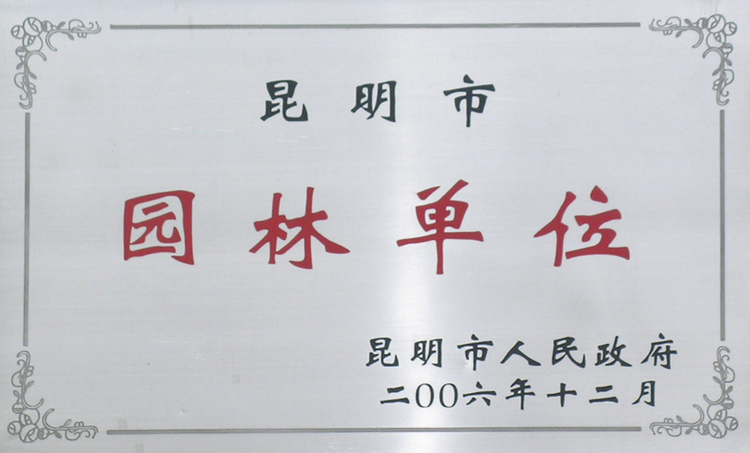 昆明市
园林单位
昆明市人民政府
二〇〇六年十二月